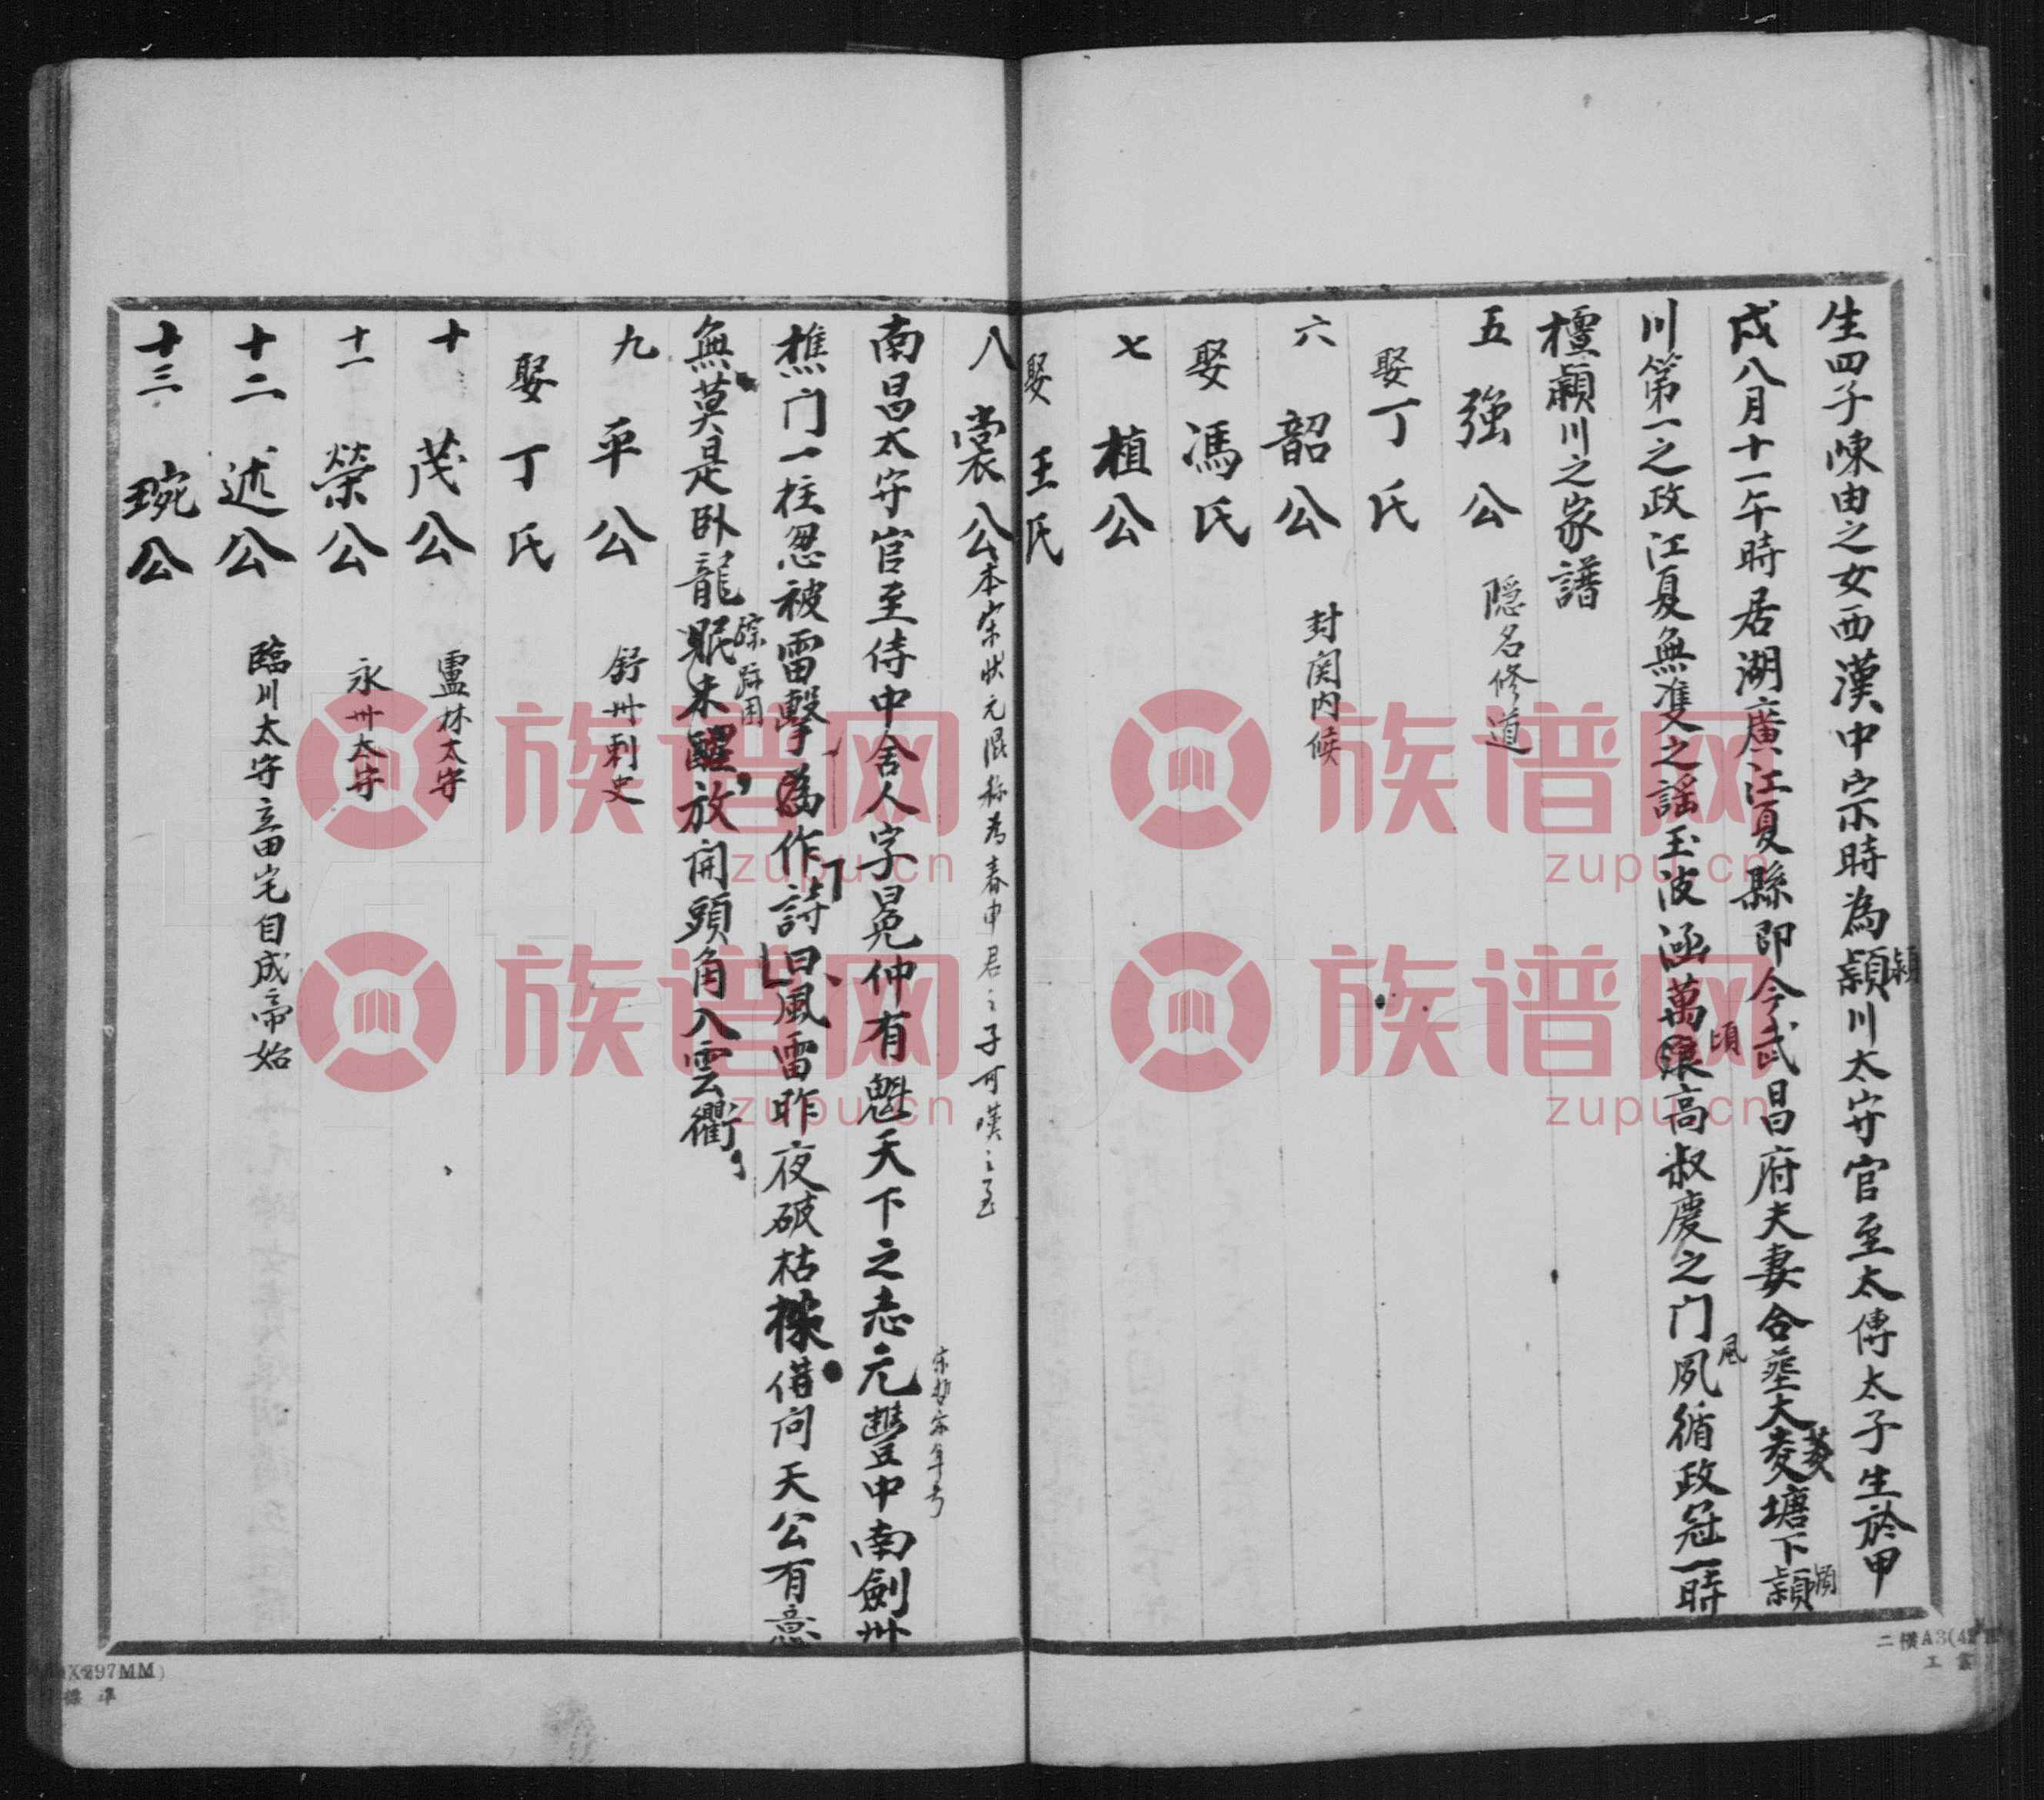 生四子陳由之女西漢中宗時為潁川太守官至太傅太子生於甲
戌八月十一午時居湖廣江夏縣即今武昌府夫妻合塟大菱塘下潁
川第一之政江夏無雙之謠玉波涵萬頃高叔慶之门夙循政冠一時
檀潁川之家譜
五 強公 隠名修道
娶丁氏
六 韶公 封関内候
娶馮氏
七 植公
娶王氏
八 裳公 本宋状元混称為春申君之子可嘆之至
南昌太守官至侍中舍人字冕仲有魁天下之志元豐中南劍州
宋神宗年号
樵门一柱忽被雷擊為作詩曰風雷昨夜破枯椽借问天公有意
無莫是臥龍眠未醒放開頭角入雲衢
踪跡用
九 平公 舒州刺史
娶丁氏
十 茂公 盧林太守
十一 榮公 永州太守
十二 述公 臨川太守立田宅自成帝始
十三 琬公
二橫A3(42
工業
X297MM)
標準
族谱网
zupu.cn
族谱网
zupu.cn
族谱网
zupu.cn
族谱网
zupu.cn